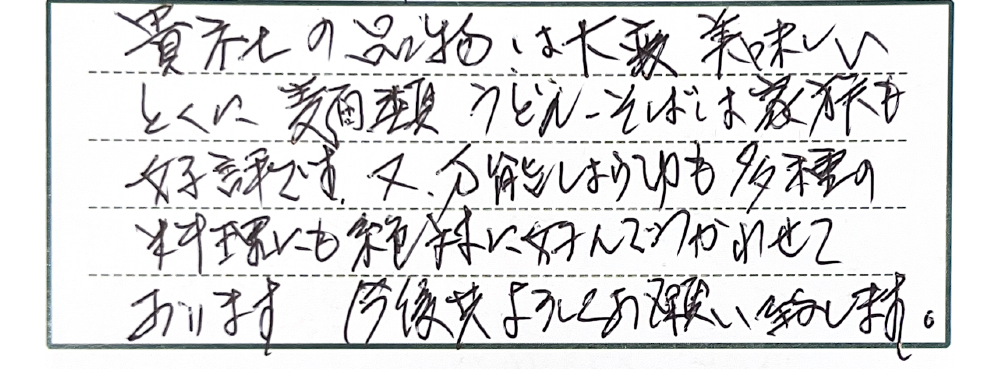 貴社の品物は大変美味しい
とくに麺類うどん、そばは家族も
好評です。又、万能しょうゆも多種の
料理にも絶妙に好んでつかわせて
おります 今後共よろしくお願い致します。